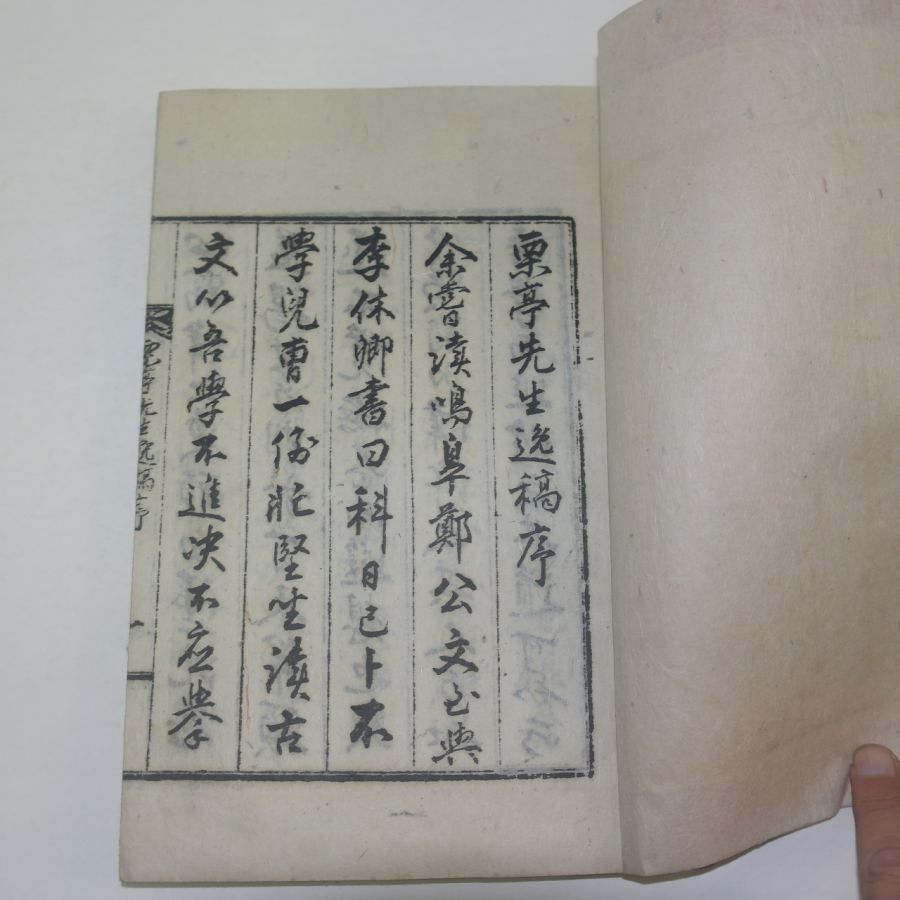 栗亭先生逸稿序
余嘗讀鳴皐鄭公文至與
李休卿書曰科日已卜不
學兒曹一例忙堅坐讀古
文以吾學不進决不應擧
栗亭先生逸稿序 一